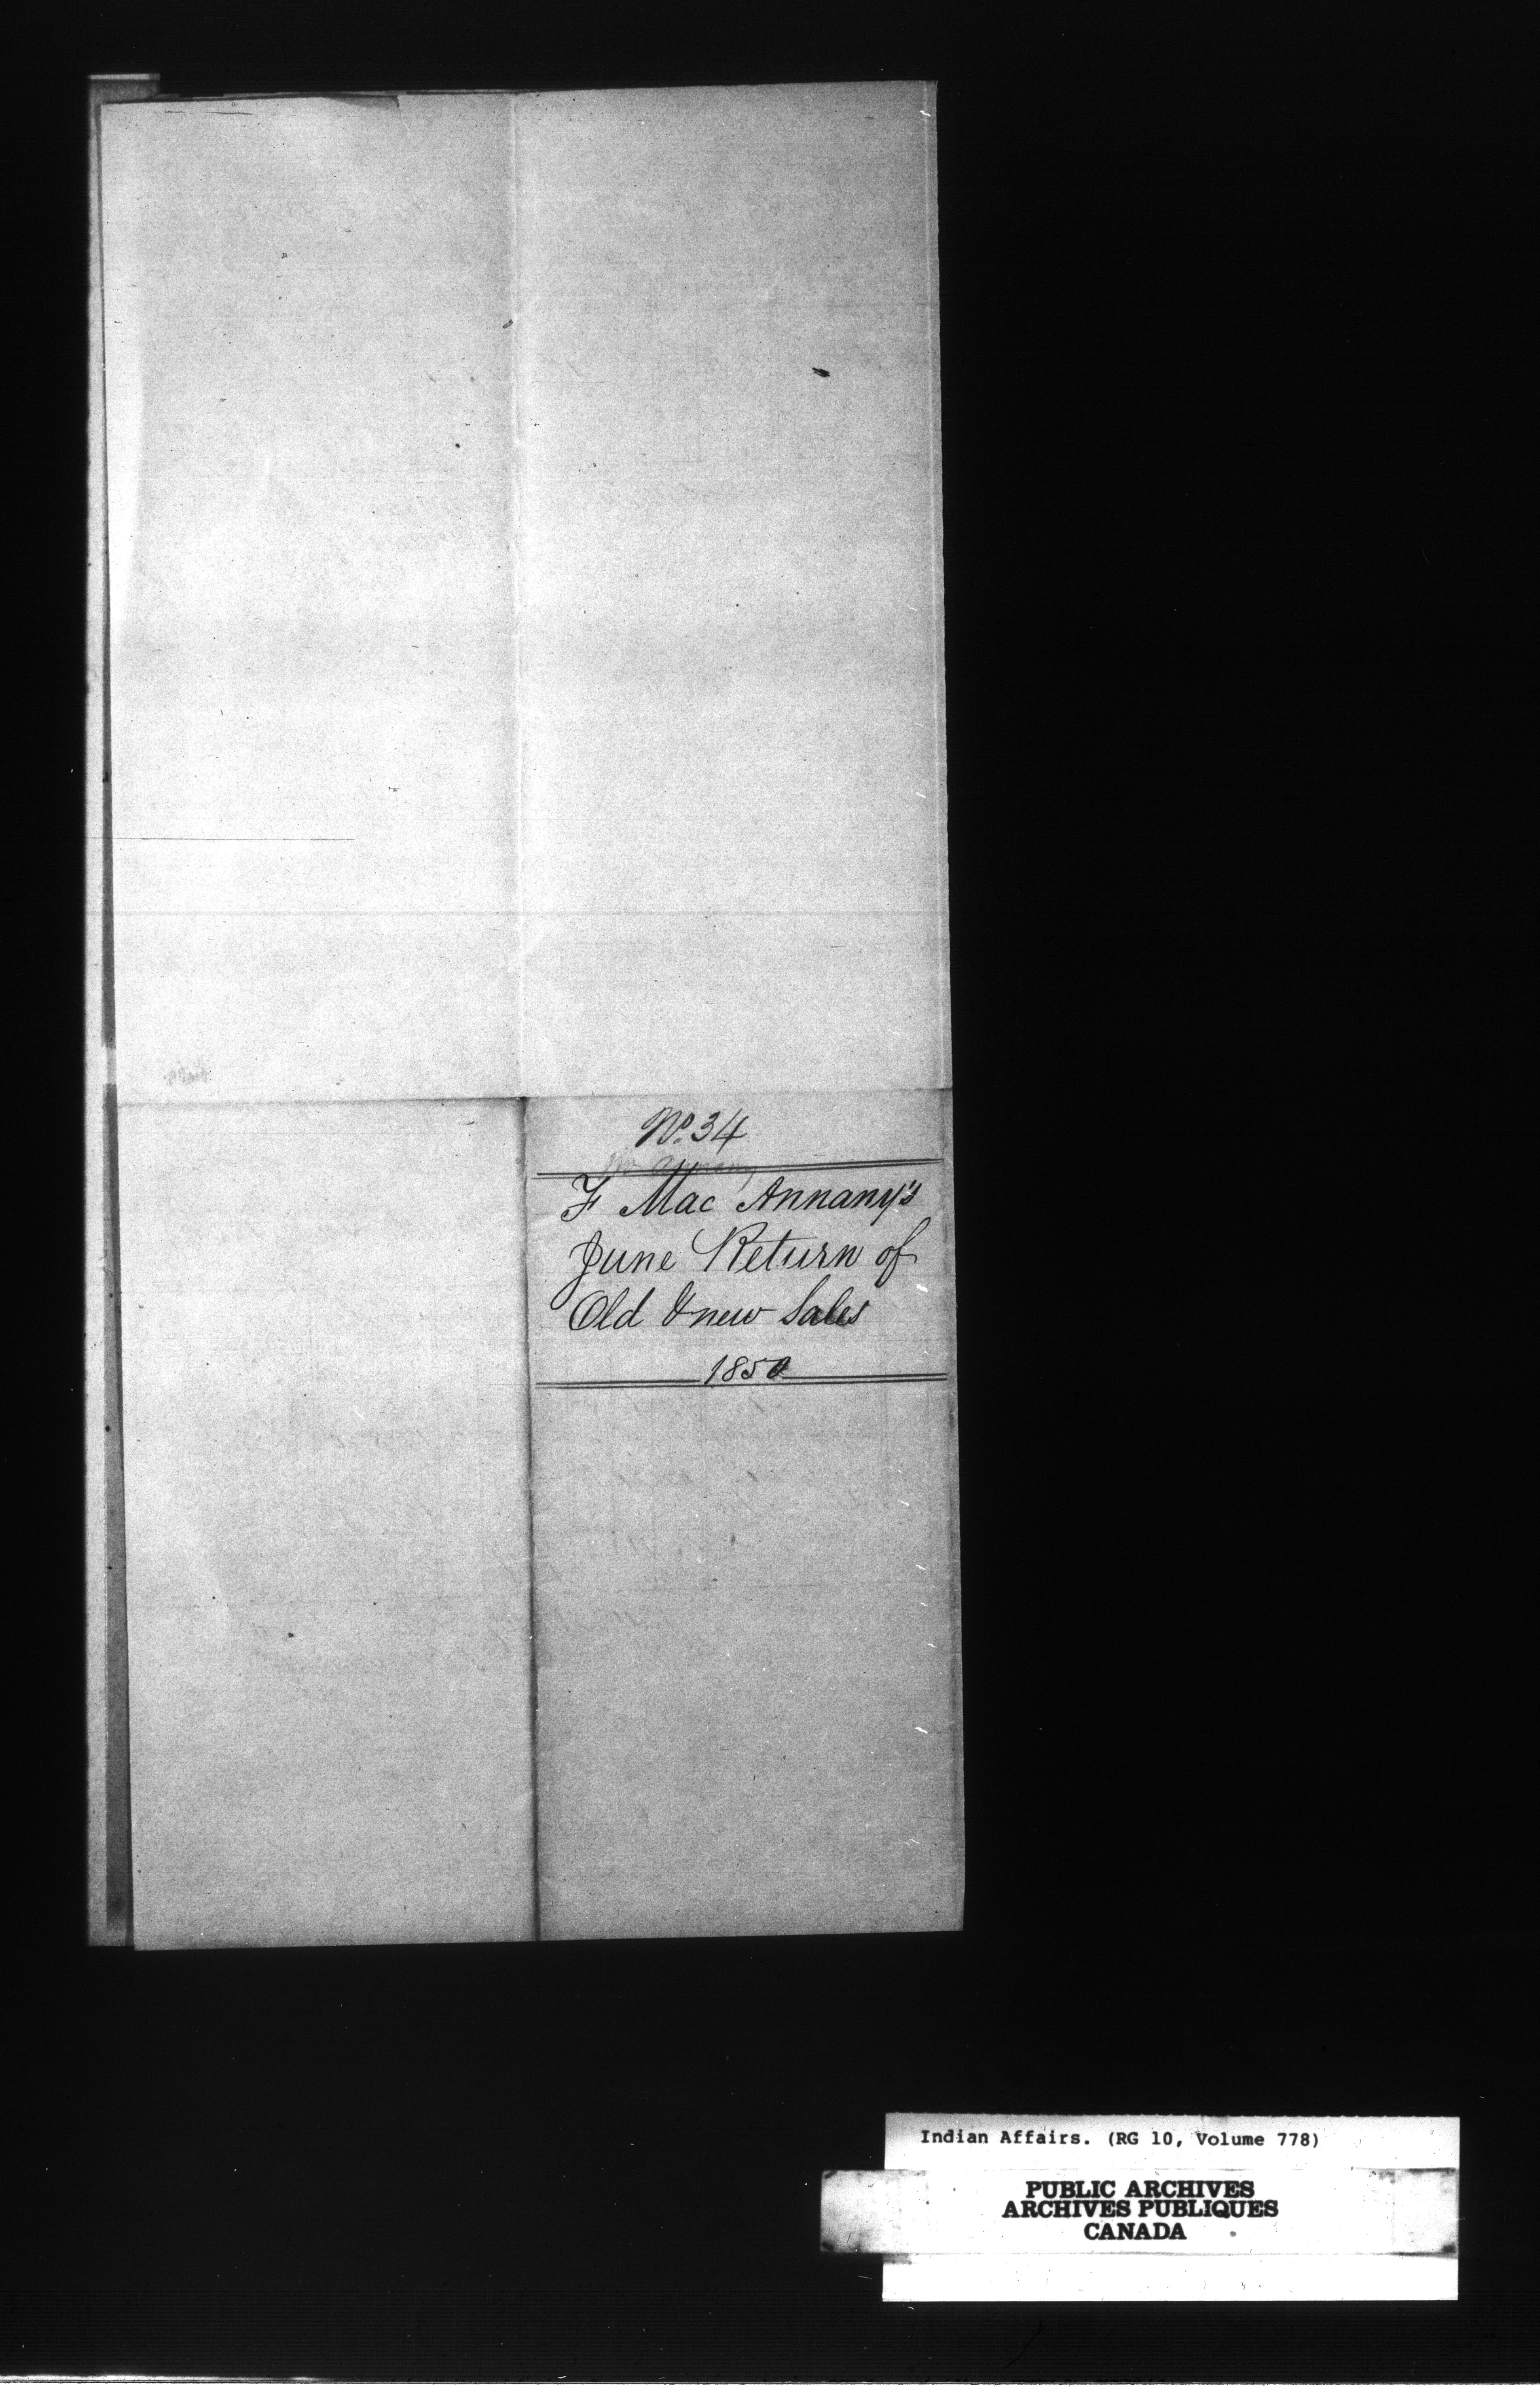 No. 34
F Mac Annany's
June Return of
Old & new Sales
1850
Indian Affairs. (RG 10, Volume 778)
PUBLIC ARCHIVES
ARCHIVES PUBLIQUES
CANADA